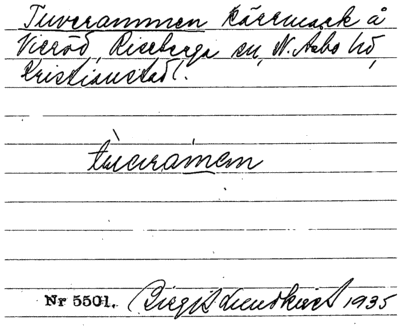 Tuverammen kärrmark å
Vieröd, Riseberga sn, N. Åsbo hd,
Kristianstad l.
tùveramen
Nr 5501. Birgit Lundkvist 1935